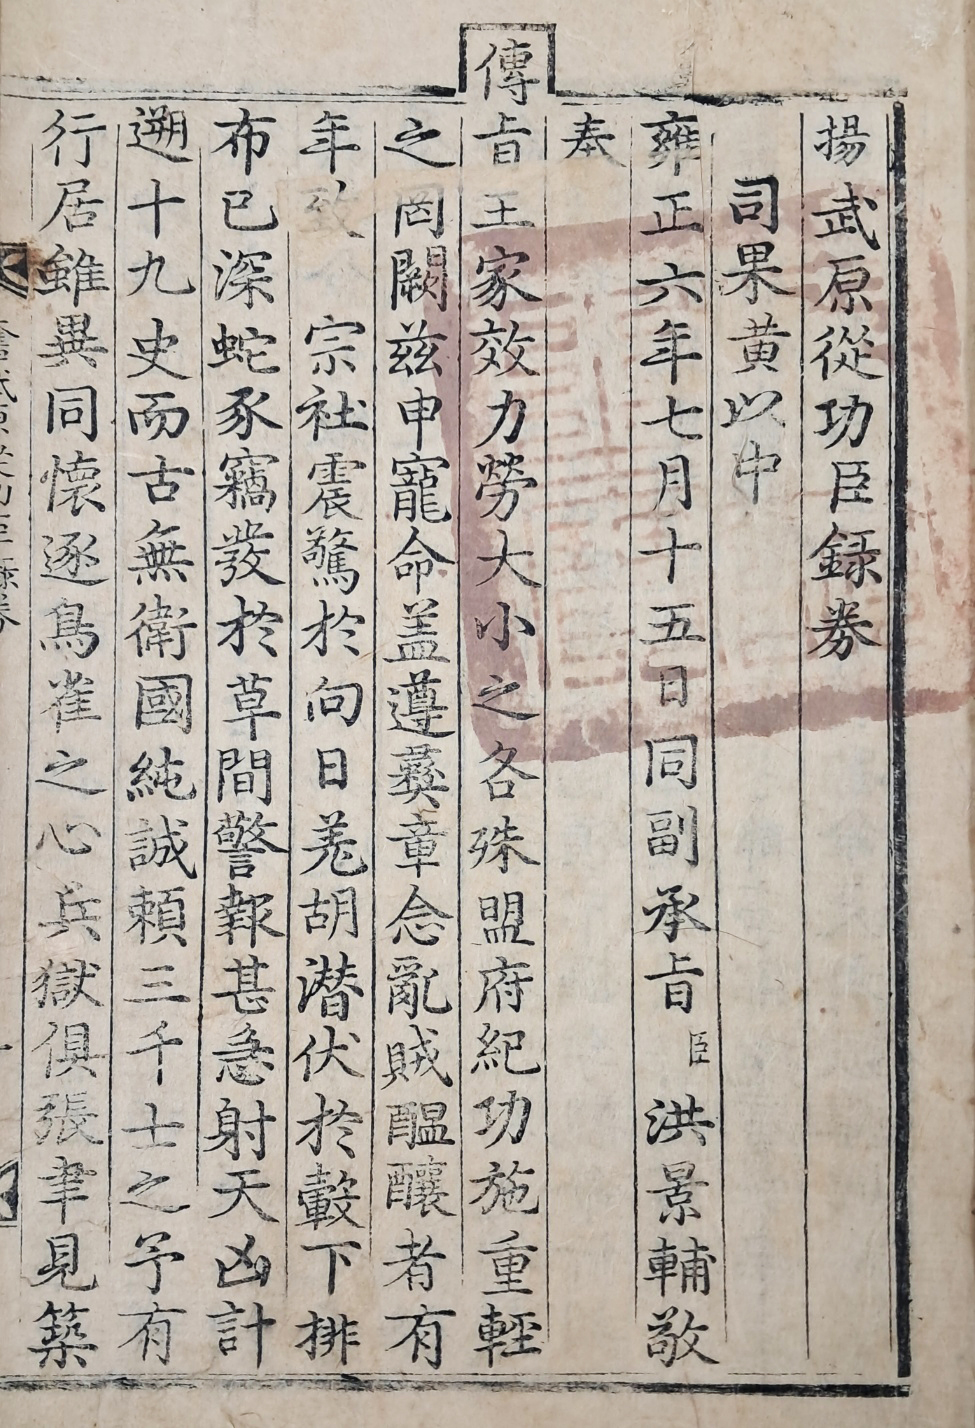 揚武原從功臣錄券
司果黃以中
雍正六年七月十五日同副承旨臣洪景輔敬
奉
傳旨王家效力勞大小之各殊盟府紀功施重輕
之罔闕玆申寵命盖遵彝章念亂賊醞釀者有
年致宗社震驚於向日羗胡潜伏於轂下排
布已深蛇豕竊發於草間警報甚急射天凶計
遡十九史而古無衛國純誠賴三千士之予有
行居雖異同懷逐鳥雀之心兵獄俱張聿見築